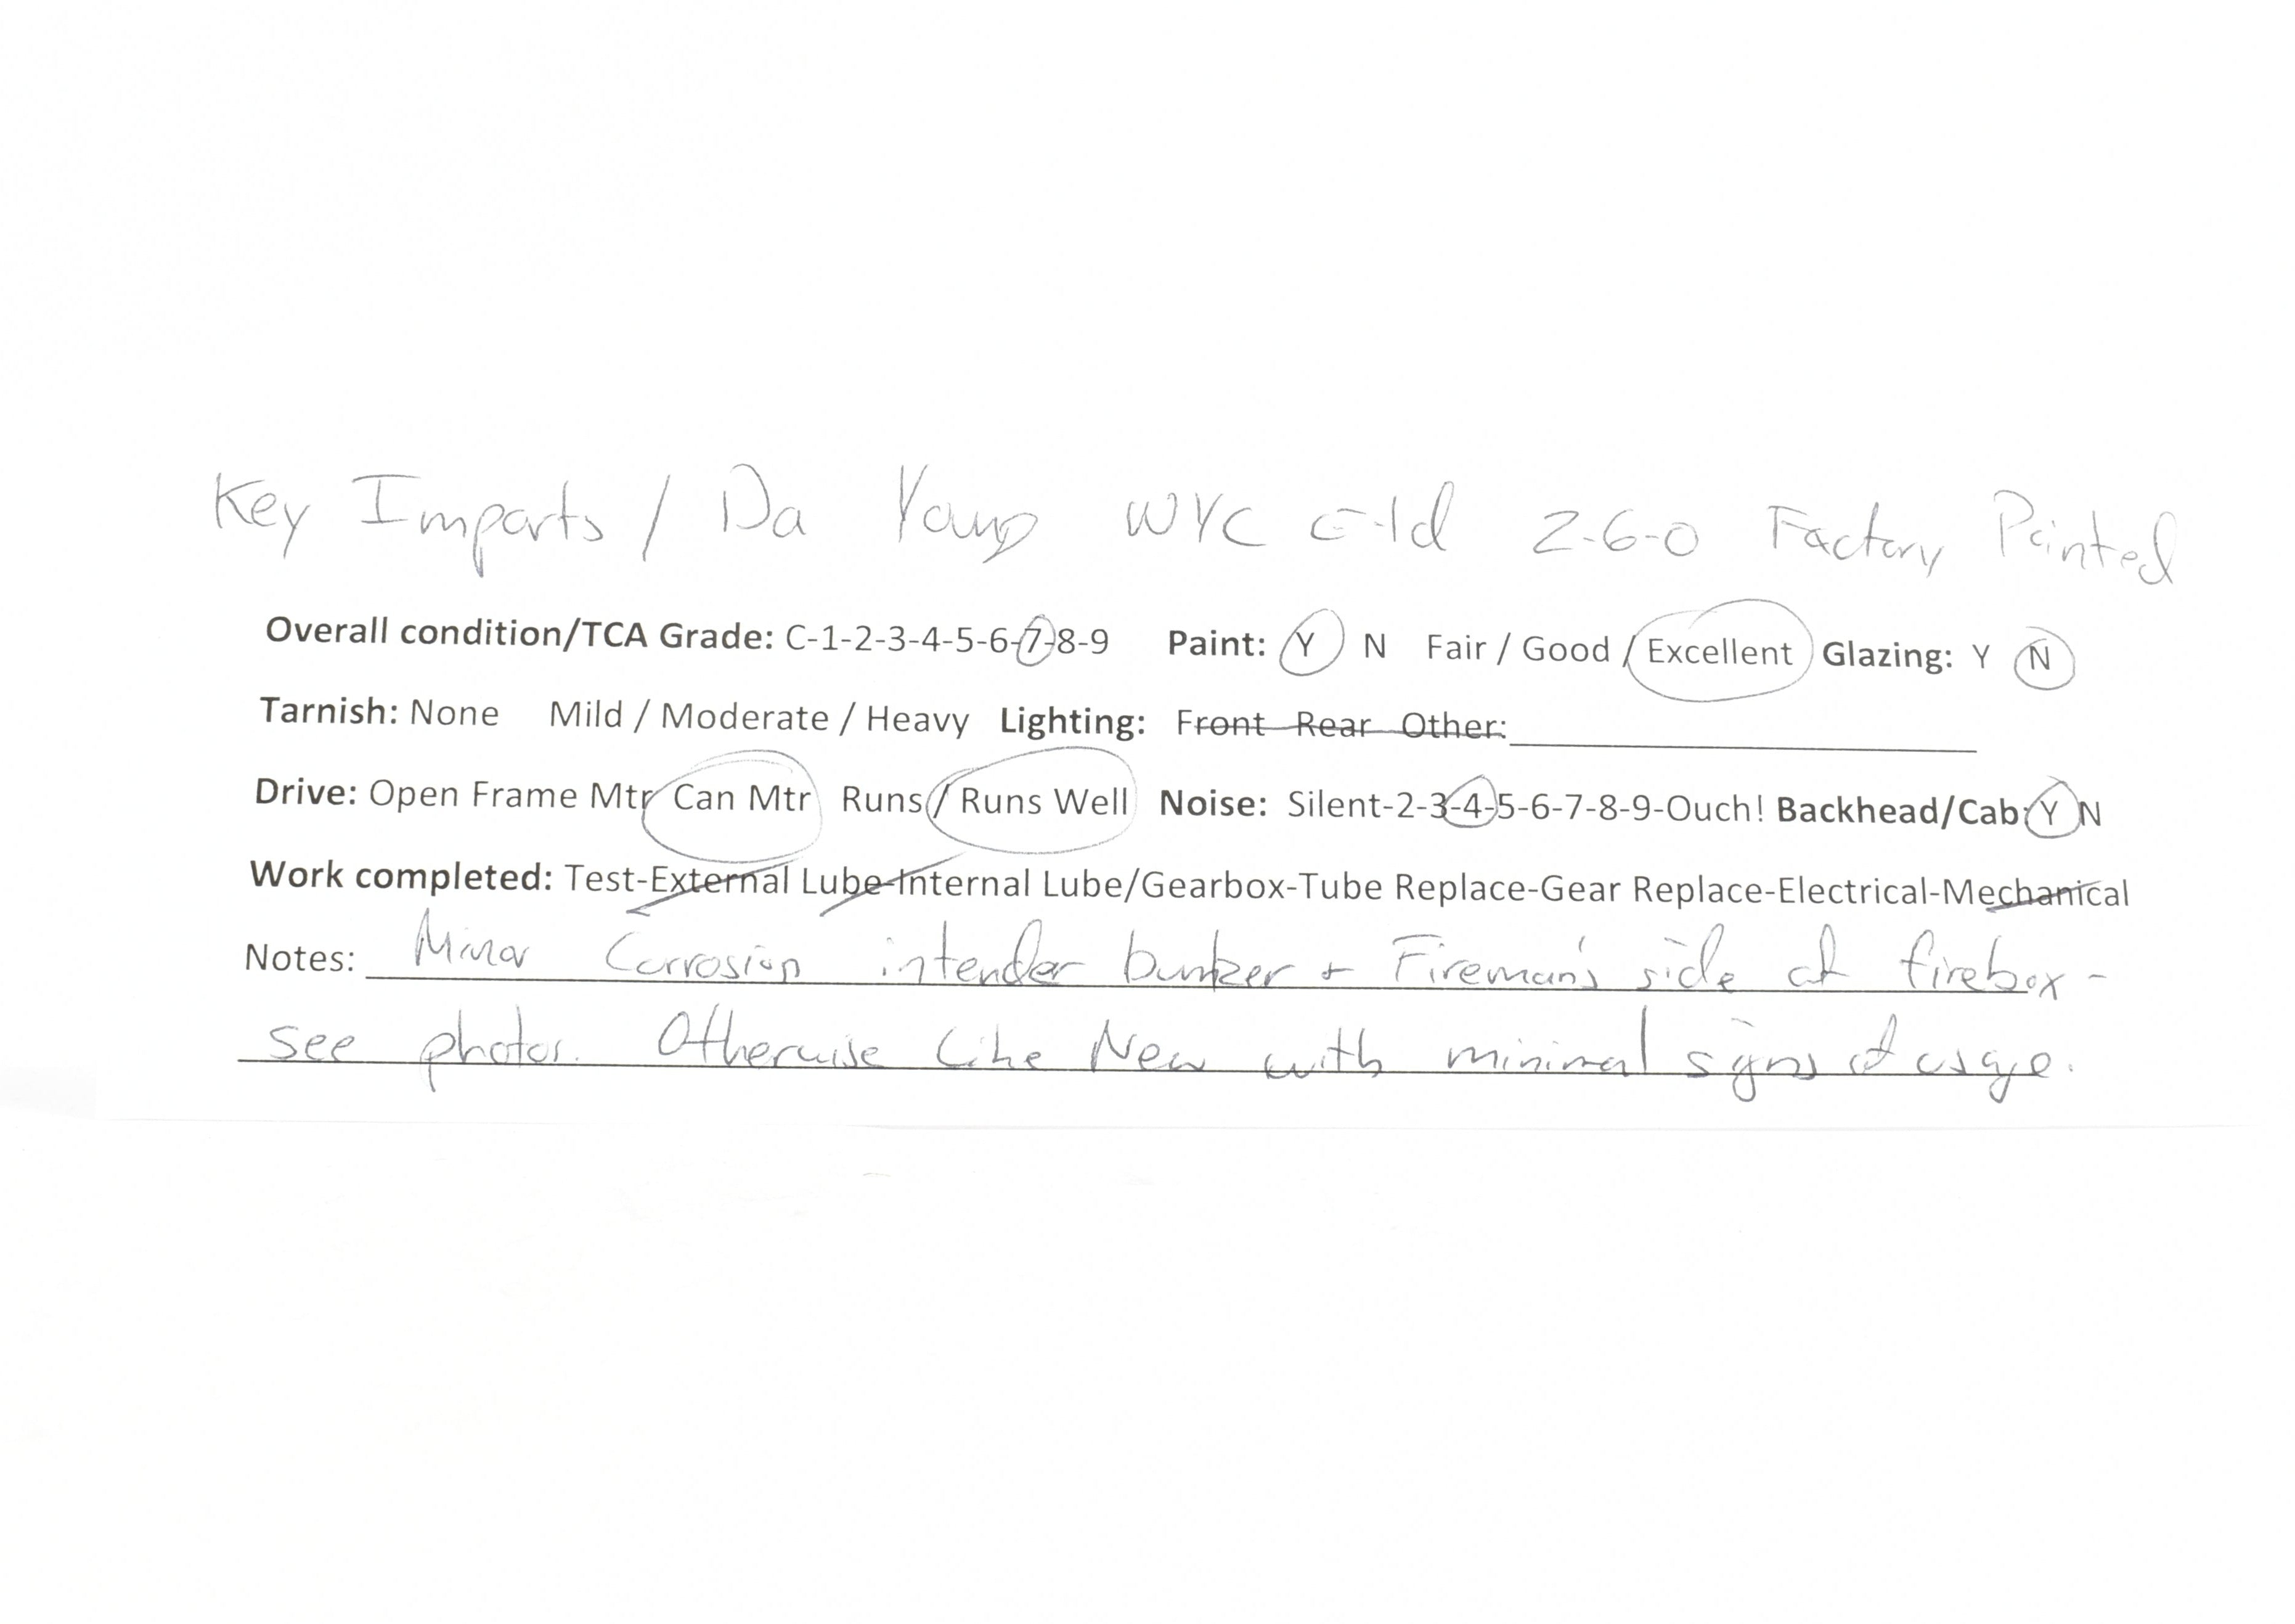 Key Imports / Da Young WYC E-1d 2-6-0 Factory Painted
Overall condition/TCA Grade: C-1-2-3-4-5-6-7-8-9 Paint: Y N Fair / Good / Excellent Glazing: Y N
Tarnish: None Mild / Moderate / Heavy Lighting: Front Rear Other:
Drive: Open Frame Mtr Can Mtr Runs / Runs Well Noise: Silent-2-3-4-5-6-7-8-9-Ouch! Backhead/Cab: Y N
Work completed: Test-External Lube-Internal Lube/Gearbox-Tube Replace-Gear Replace-Electrical-Mechanical
Notes: Minor Corrosion in tender bunker + Fireman's side of firebox -
see photos. Otherwise Like New with minimal signs of usage.